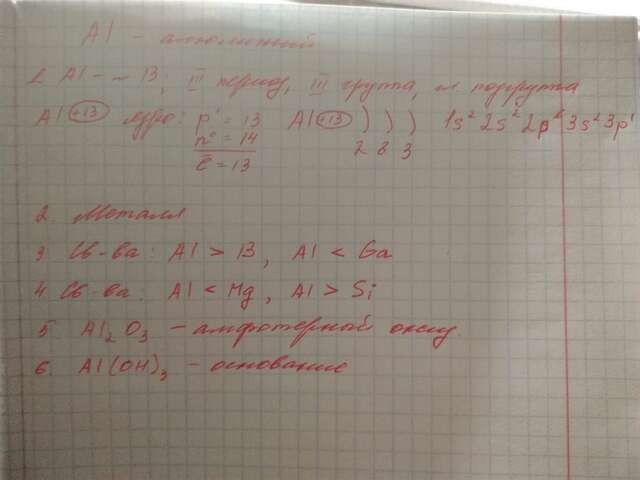 Al - алюминий
1. Al - № 13; III период, III группа, гл подгруппа
Al +13 ядро: p⁺ = 13 Al +13 ) ) ) 1s² 2s² 2p⁶ 3s² 3p¹
n⁰ = 14 2 8 3
e = 13
2. Металл
3 Св-ва: Al > B, Al < Ga
4. Св-ва: Al < Mg, Al > Si
5 Al₂O₃ - амфотерный оксид.
6. Al(OH)₃ - основание